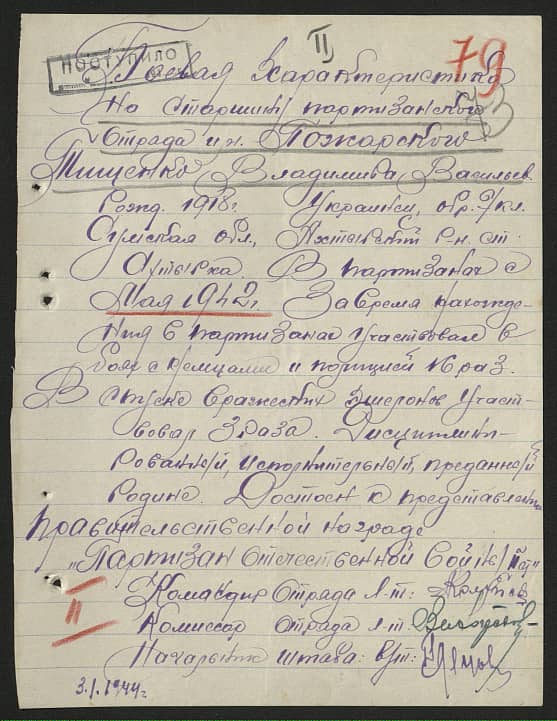 ПОСТУПИЛО
II
79
Боевая Характеристика
на Старшину партизанского
Отряда им. Пожарского
Тищенко Владимира Васильев.
рожд. 1918г. Украинец, обр. 7 кл.
Сумская обл,
В партизанах с
Мая 1942г. За время нахожде-
ния в партизанах участвовал в
боях с немцами и полицией 16 раз.
В спуске вражеских эшелонов участ-
вовал 3 раза. Дисциплини-
рованный, исполнительный, преданный
Родине. Достоен к представлению
Правительственной награде
„Партизан Отечественной Войны II ст"
Командир Отряда Л-т:
II
Комиссар Отряда Л-т
Начальник штаба:
3.1.1944г.